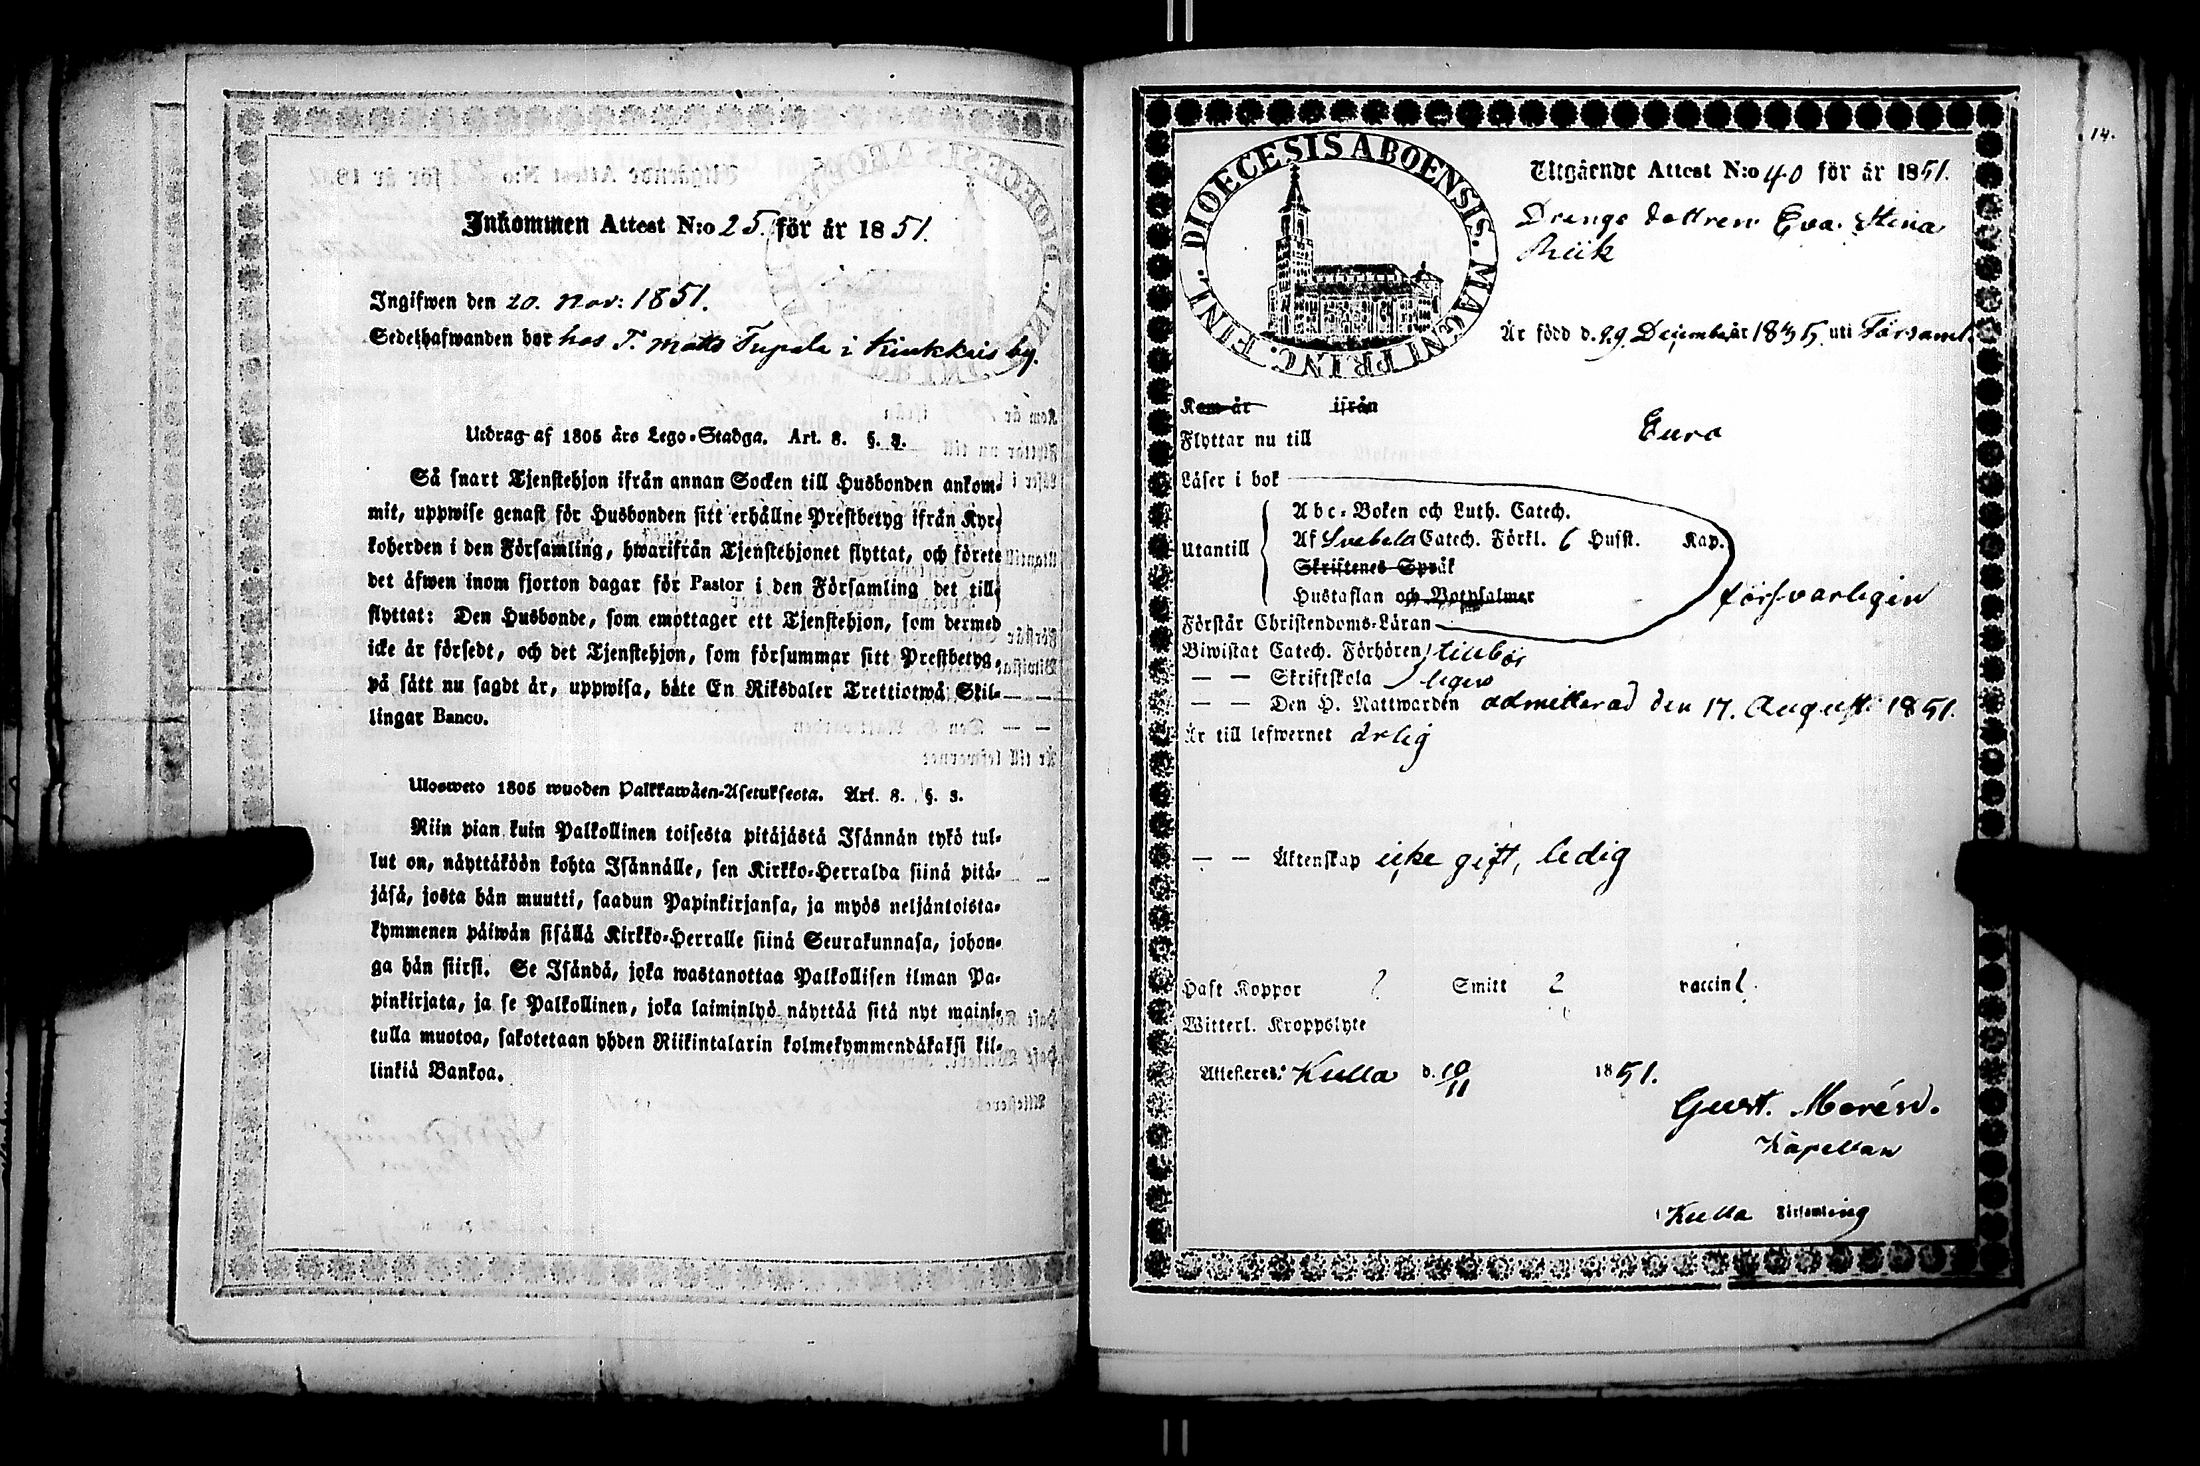 Inkommen Attest N:o 25. för år 1851.
Ingifwen den 20. Nov: 1851.
Sedelhafwanden bor hos T. Matts Tupala i Kiukkais by.
Utdrag af 1805 års Lego-Stadga. Art. 8. §. 3.
Så snart Tjenstehjon ifrån annan Socken till Husbonden ankom-
mit, uppwise genast för Husbonden sitt erhållne Prestbetyg ifrån Kyr-
koherden i den Församling, hwarifrån Tjenstehjonet flyttat, och förete
det äfwen inom fjorton dagar för Pastor i den Församling det till-
flyttat: Den Husbonde, som emottager ett Tjenstehjon, som dermed
icke är försedt, och det Tjenstehjon, som försummar sitt Prestbetyg,
på sätt nu sagdt är, uppwisa, böte En Riksdaler Trettiotwå Skil-
lingar Banco.
Ulosweto 1805 wuoden Palkkawäen-Asetuksesta. Art. 8. §. 3.
Niin pian kuin Palkollinen toisesta pitäjästä Isännän tykö tul-
lut on, näyttäköön kohta Isännälle, sen Kirkko-Herralda siinä pitä-
jäsä, josta hän muutti, saadun Papinkirjansa, ja myös neljäntoista-
kymmenen päiwän sisällä Kirkko-Herralle siinä Seurakunnasa, johon-
ga hän siirsi. Se Isändä, joka wastanottaa Palkollisen ilman Pa-
pinkirjata, ja se Palkollinen, joka laiminlyö näyttää sitä nyt maini-
tulla muotoa, sakotetaan yhden Riikintalarin kolmekymmendäkaksi kil-
linkiä Bankoa.
14.
DIOECESIS ABOENSIS. MAGNI PRINC. FINL.
Utgående Attest N:o 40 för år 1851.
Drengs dottren Eva Stina
Är född d. 29 December år 1835 uti Församl.
Kom år ifrån
Flyttar nu till Eura
Läser i bok
Utantill
Abc-Boken och Luth. Catech.
Af Svebelii Catech. Förkl. 6 Hufst. Kap.
Skriftenes Språk
Hustaflan och Botpsalmer
försvarligen
Förstår Christendoms-Läran
Biwistat Catech. Förhören tillbör
— — Skriftskola ligen
— — Den H. Nattwarden admitterad den 17. Augusti 1851.
Är till lefwernet ärlig
— — Äktenskap icke gift, ledig
Haft Koppor ? Smitt 2 vaccin 1.
Witterl. Kroppslyte
Attesteres: Kulla d. 10/11 1851.
Gust. Morén.
Kapellan
i Kulla Församling